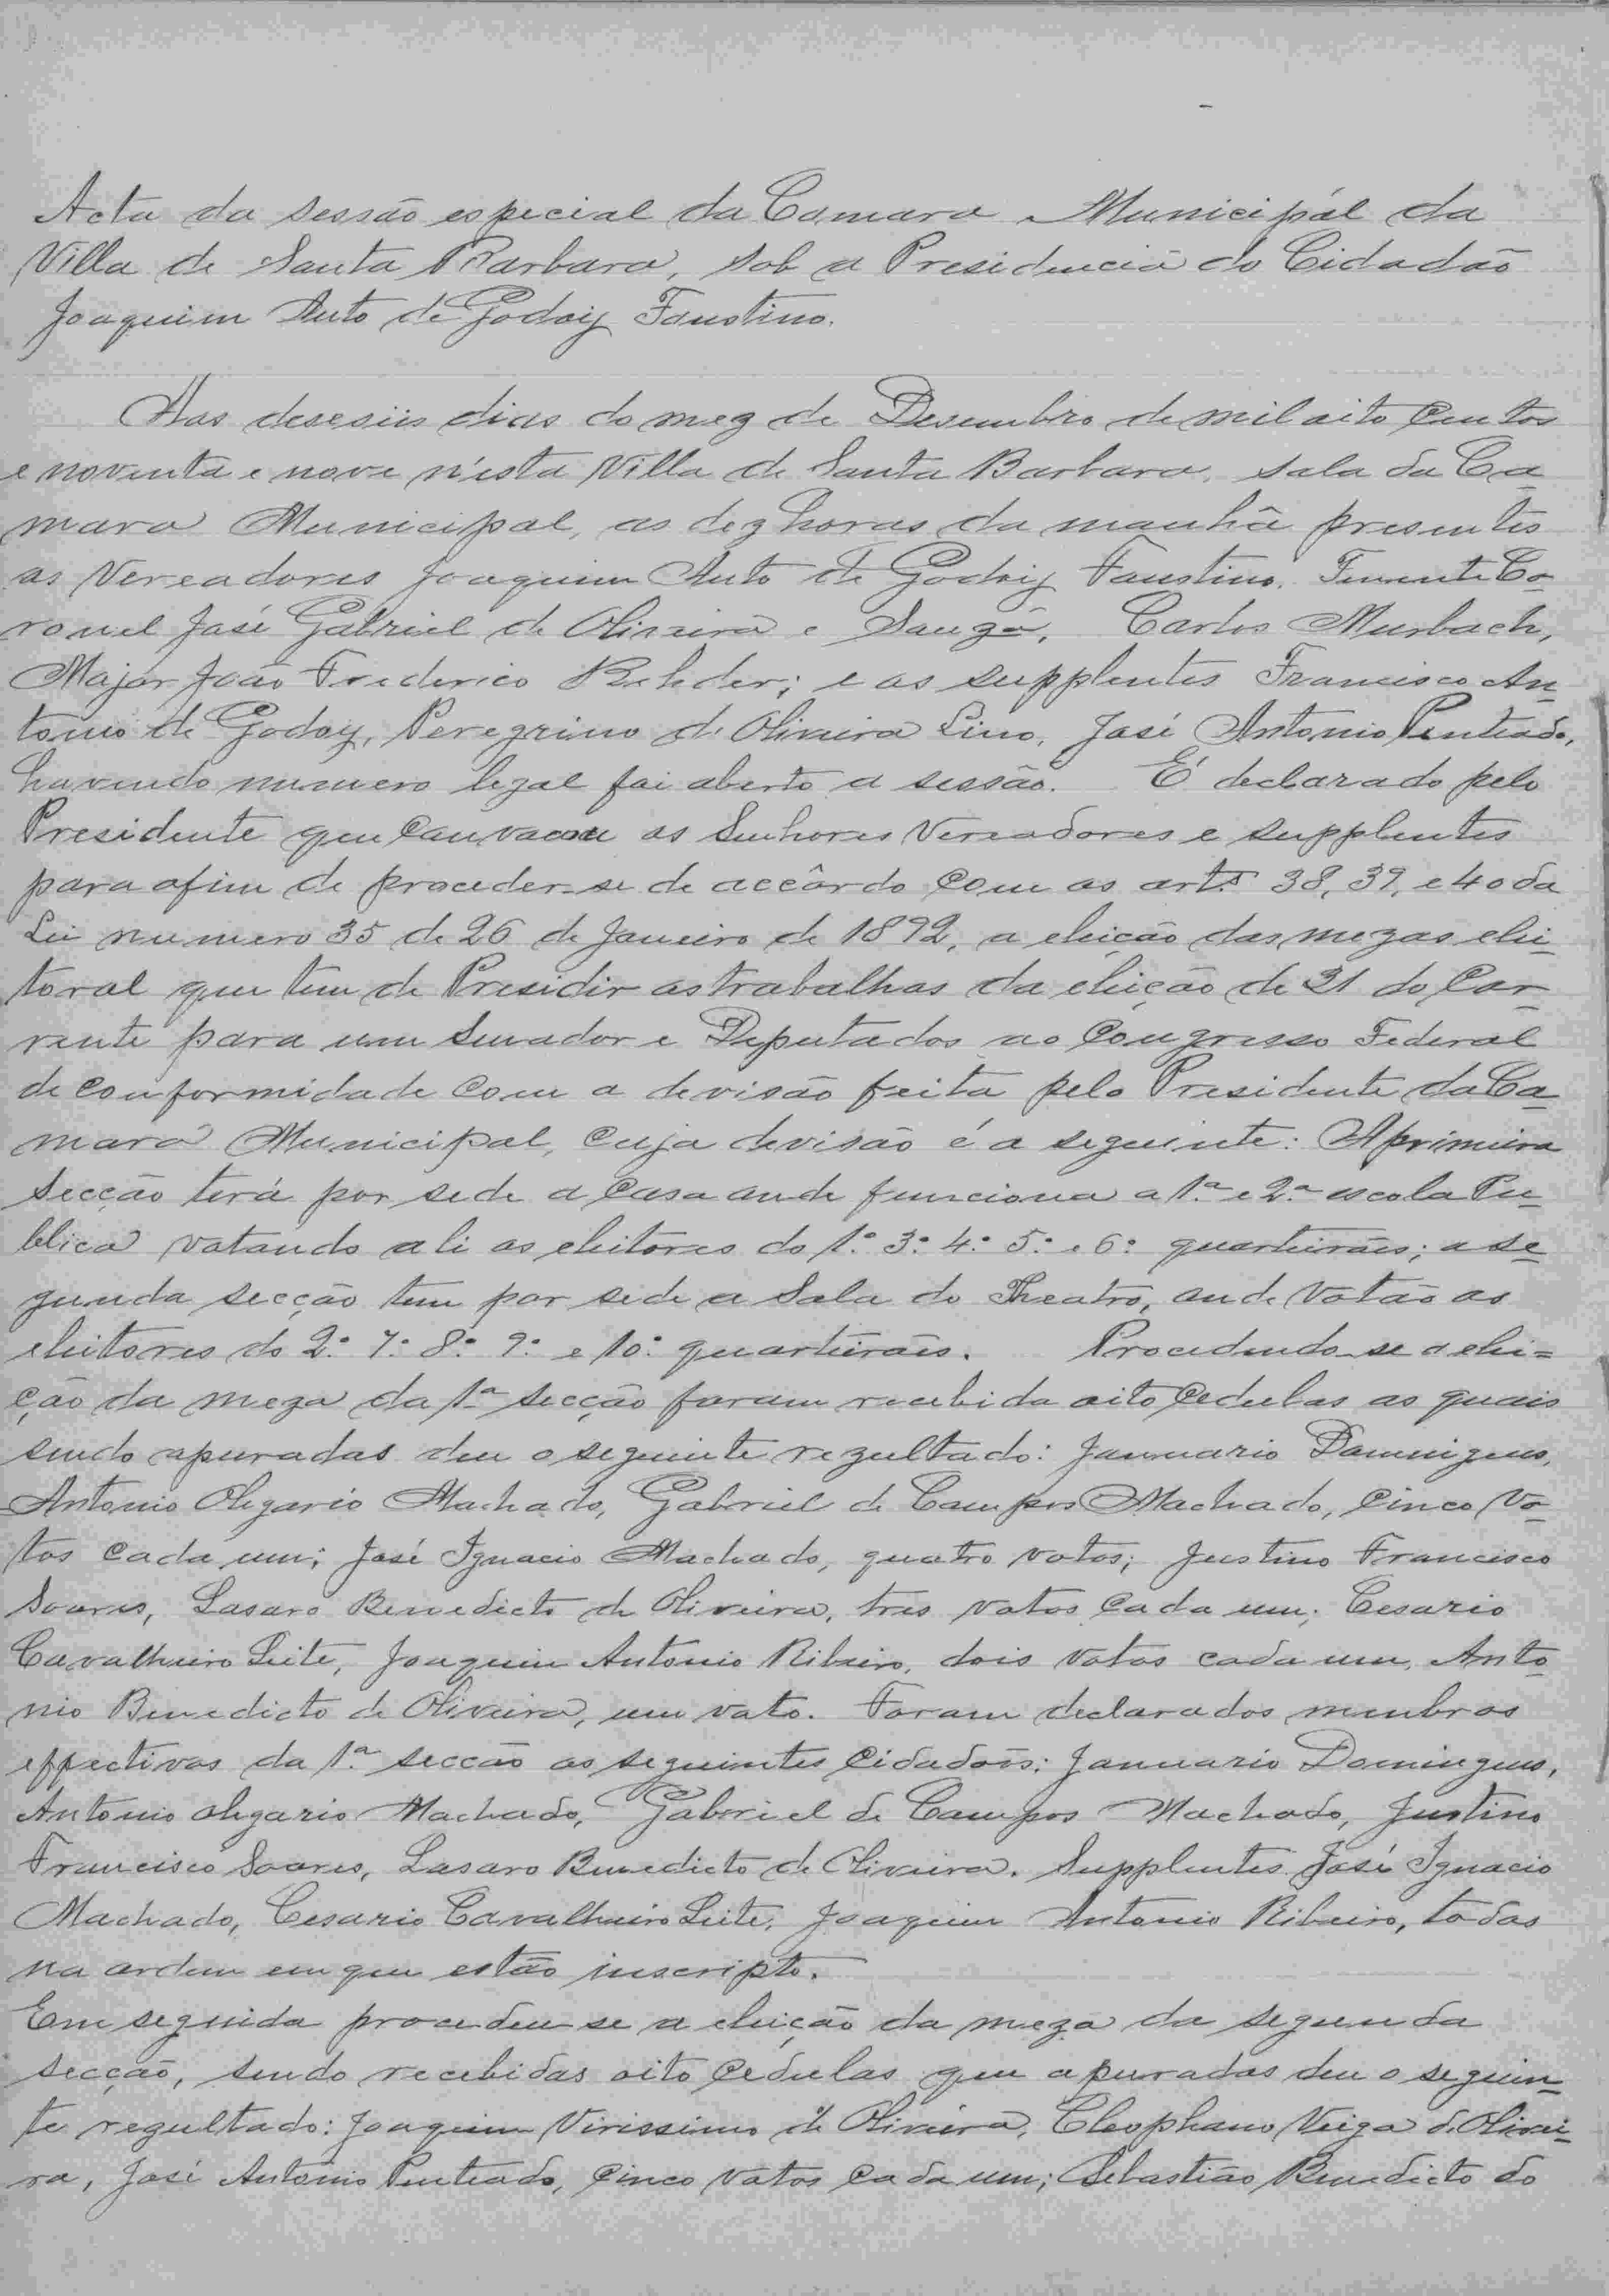 Acta da sessão especial da Camara Municipal da
Villa de Santa Barbara, sob a Presidencia do Cidadão
Joaquim Auto de Godoy Faustino.
Aos deseseis dias do mez de Desembro de mil oito centos
e noventa e nove n'esta Villa de Santa Barbara, sala da Ca-
mara Municipal, as dez horas da manhã presentes
os Vereadores Joaquim Auto de Godoy Faustino, Tenente Co-
ronel José Gabriel de Oliveira e Souza, Carlos Murbach,
Major João Frederico Rehder; e os supplentes Francisco An-
tonio de Godoy, Peregrino de Oliveira Lino, José Antonio Penteado,
havendo numero legal foi aberto a sessão. É declarado pelo
Presidente que convocou os Senhores Vereadores e supplentes
para afim de proceder-se de accôrdo com os art.s 38, 39, e 40 da
Lei numero 35 de 26 de Janeiro de 1892, a eleição das mezas elei-
toral que tem de Presidir os trabalhos da eleição de 31 do Cor-
rente para um Senador e Deputados ao Congresso Federal
de conformidade com a devisão feita pelo Presidente da Ca-
mara Municipal, cuja devisão é a seguinte: A primeira
Secção terá por sede a Casa onde funciona a 1.ª e 2.ª escola Pu-
blica votando ali os eleitores do 1.º 3.º 4.º 5.º e 6.º quarteirões; a se-
gunda secção tem por sede a Sala do Theatro, onde Votão os
eleitores do 2.º 7.º 8.º 9.º e 10.º quarteirões. Procedendo-se a elei=
ção da meza da 1.ª secção foram recebida oito Cedulas as quais
sendo apuradas deu o seguinte rezultado: Januario Domingues,
Antonio Olegario Machado, Gabriel de Campos Machado, Cinco Vo-
tos Cada um; José Ignacio Machado, quatro votos; Justino Francisco
Soares, Lasaro Benedicto de Oliveira, tres votos Cada um; Cesario
Cavalheiro Leite, Joaquim Antonio Ribeiro, dois Votos cada um, Anto-
nio Benedicto de Oliveira, um voto. Foram declarados membros
effectivos da 1.ª secção os seguintes Cidadãos: Januario Domingues,
Antonio Olegario Machado, Gabriel de Campos Machado, Justino
Francisco Soares, Lasaro Benedicto de Oliveira. Supplentes José Ignacio
Machado, Cesario Cavalheiro Leite, Joaquim Antonio Ribeiro, todos
na ordem em que estão inscripto.
Em seguida procedeu-se a eleição da meza da segunda
secção, sendo recebidas oito Cedulas que apuradas deu o seguin-
te rezultado: Joaquim Virissimo de Oliveira, Cleophano Veiga d. Olivei-
ra, José Antonio Penteado, Cinco Votos Cada um; Sebastião Benedicto do